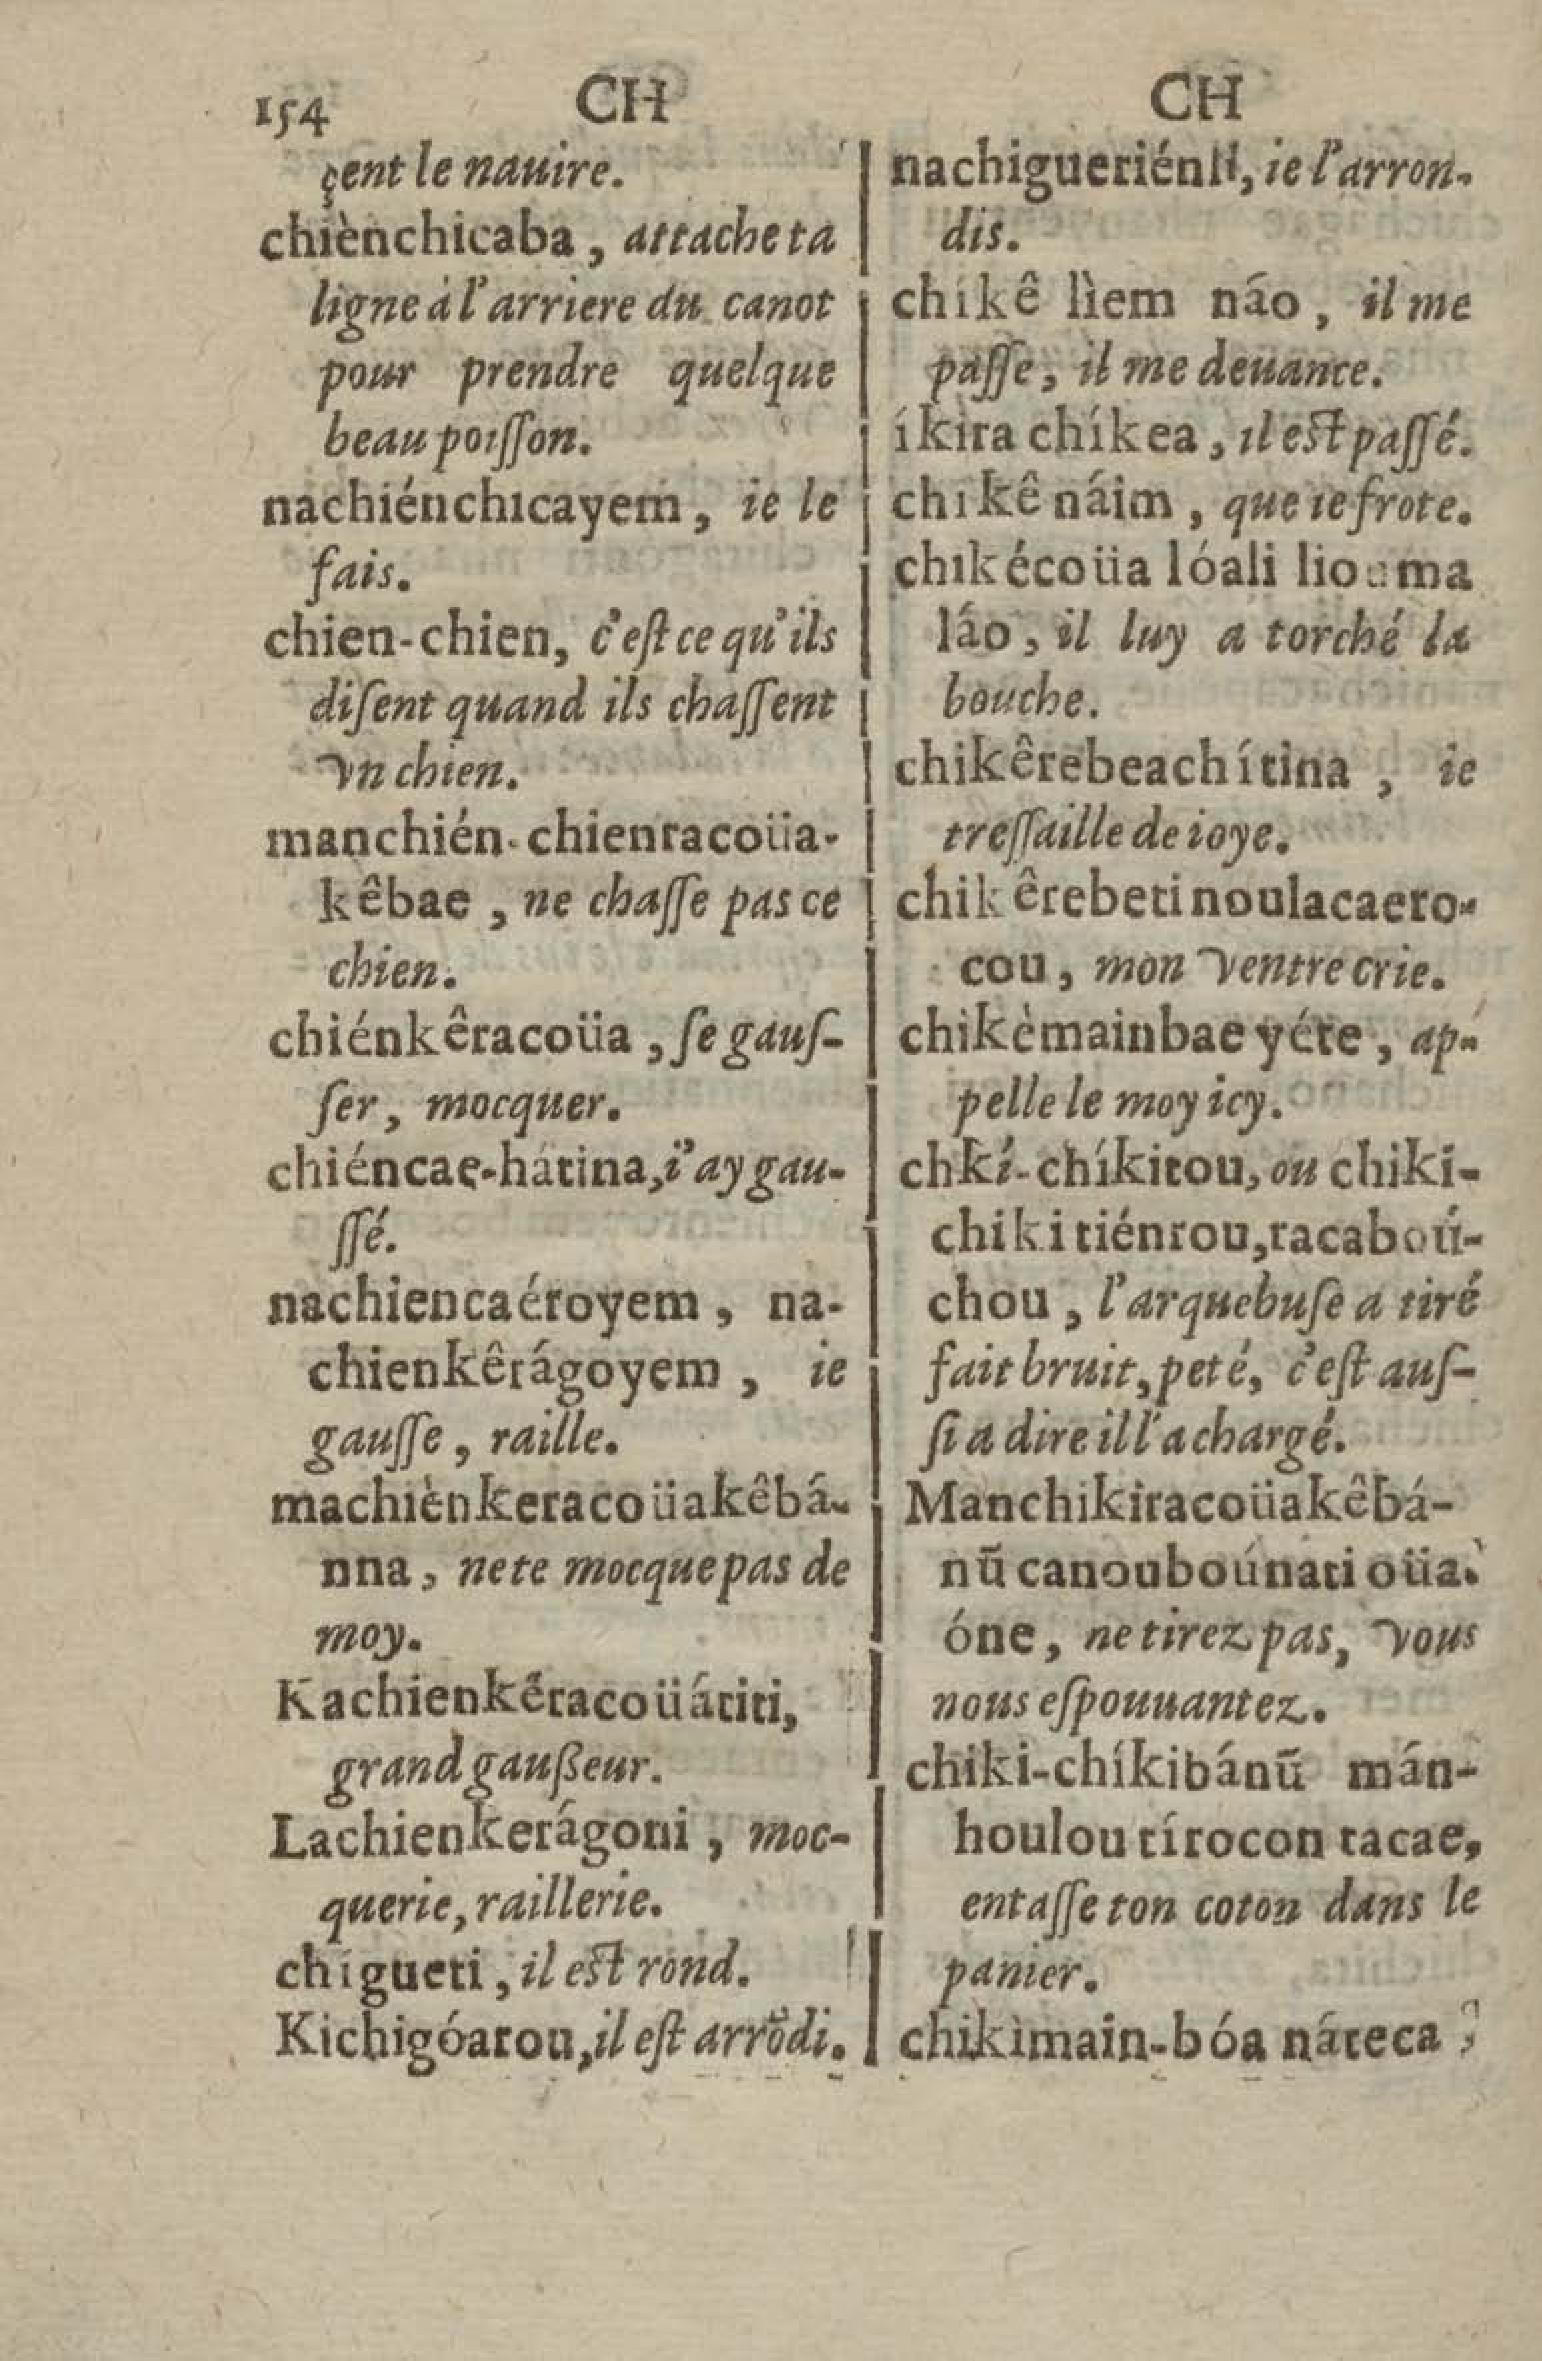 154 CH CH
çent le nauire.
chiènchicaba, attache ta
ligne à l'arriere du canot
pour prendre quelque
beau poiſſon.
nachiénchicayem, ie le
fais.
chien-chien, c'eſt ce qu'ils
diſent quand ils chaſſent
vn chien.
manchién-chienracoüa-
kêbae, ne chaſſe pas ce
chien.
chiénkêracoüa, ſe gauſ-
ſer, mocquer.
chiéncae-hátina, i'ay gau-
ſſé.
nachiencaéroyem, na-
chienkêrágoyem, ie
gauſſe, raille.
machiènkeracoüakêbá-
nna, ne te mocque pas de
moy.
Kachienkêracoüátiti,
grand gaußeur.
Lachienkerágoni, moc-
querie, raillerie.
chigueti, il eſt rond.
Kichigóarou, il eſt arrõdi.
nachigueriénli, ie l'arron-
dis.
chíkê lìem náo, il me
paſſe, il me deuance.
íkira chíkea, il eſt paſſé.
chikê náim, que ie frote.
chikécoüa lóali liouma
láo, il luy a torché la
bouche.
chikêrebeachítina, ie
treſſaille de ioye.
chikêrebetinoulacaero-
cou, mon ventre crie.
chikèmainbae yéte, ap-
pelle le moy icy.
chkí-chíkitou, ou chiki-
chikitiénrou, racaboú-
chou, l'arquebuſe a tiré
fait bruit, peté, c'eſt auſ-
ſi a dire il l'a chargé.
Manchikiracoüakêbá-
nũ canouboúnati oüa.
óne, ne tirez pas, vous
nous eſpouuantez.
chiki-chíkibánũ mán-
houlou tírocon tacae,
entaſſe ton coton dans le
panier.
chikìmain-bóa náteca,